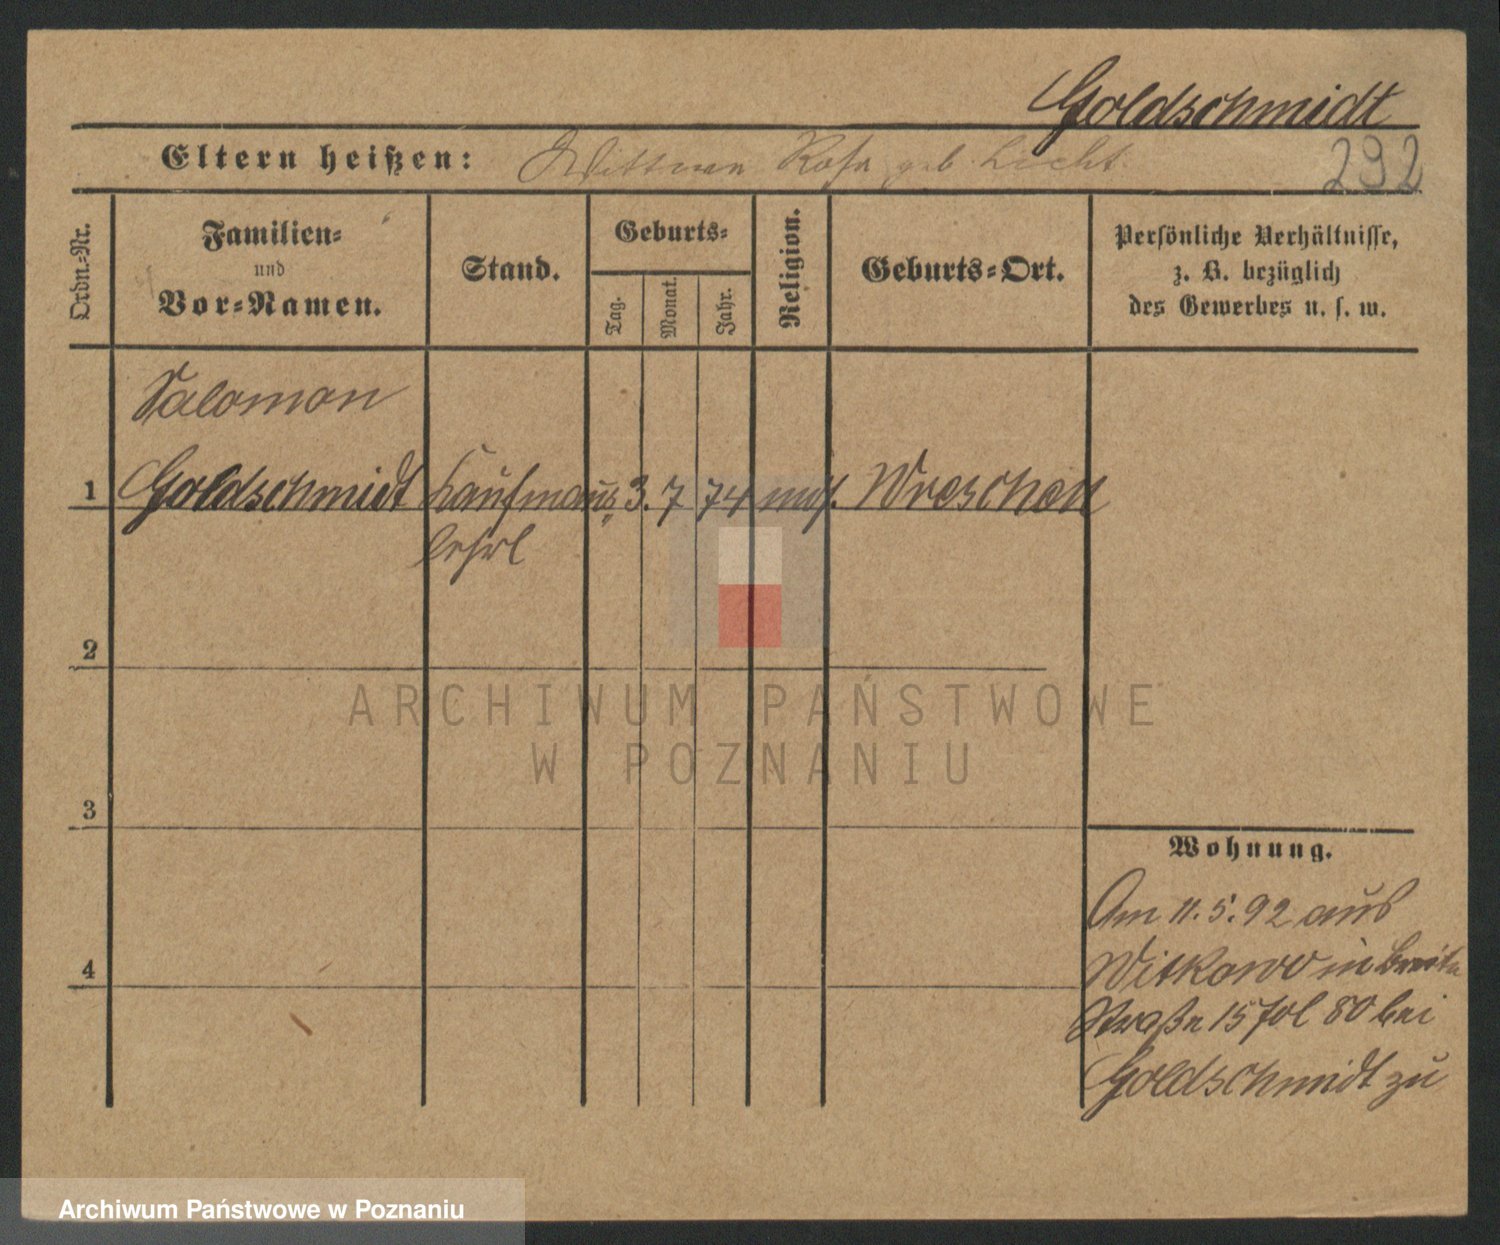 Goldschmidt
Eltern heißen: Wittwe Rosa geb. Licht.
292
Ordn.-Nr.
Familien-
und
Vor-Namen.
Stand.
Geburts-
Tag.
Monat.
Jahr.
Religion.
Geburts-Ort.
Persönliche Verhältnisse,
z. B. bezüglich
des Gewerbes u. s. w.
Salomon
1 Goldschmidt Kaufmanns 3. 7 74 mos. Wreschen
lehrl
2
ARCHIWUM PAŃSTWOWE
W POZNANIU
3
Wohnung.
Am 11.5.92 aus
4
Witkowo in Breite
Straße 15 fol 80 bei
Goldschmidt zu
Archiwum Państwowe w Poznaniu